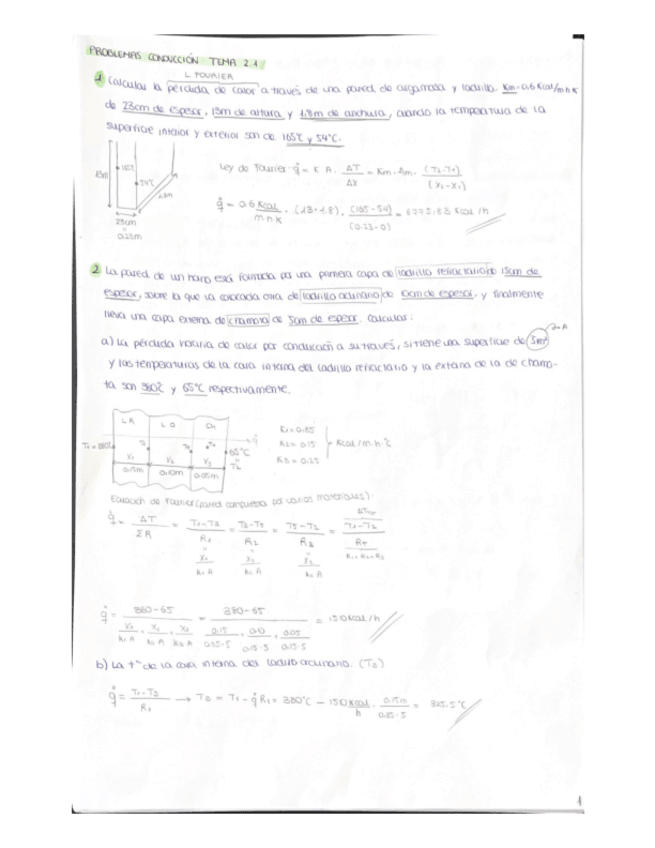 PROBLEMAS CONDUCCIÓN TEMA 2.1
L FOURIER
1 Calcular la pérdida de calor a través de una pared de argamasa y ladrillo. Km=0.6 Kcal/m h K
de 23cm de espesor, 13m de altura y 1.8m de anchura, cuando la temperatura de la
superficie interior y exterior son de 165°C y 54°C.
Ley de Fourier q̇ = K A · ΔT/Δx = Km · Am · (T2-T1)/(X2-X1)
54°C
1.8m
23cm
0.23m
q̇ = 0.6 Kcal/m h K · (13·1.8) · (165-54)/(0.23-0) = 6775.83 Kcal/h
2 La pared de un horno está formada por una primera capa de ladrillo refractario de 15cm de
espesor, sobre la que va colocada otra de ladrillo ordinario de 10cm de espesor, y finalmente
lleva una capa externa de chamota de 5cm de espesor. Calcular:
a) La pérdida horaria de calor por conducción a su través, si tiene una superficie de 5m²
y las temperaturas de la cara interna del ladrillo refractario y la externa de la de chamo-
ta son 380°C y 65°C respectivamente.
LR LO CH
K1=0.85
K2=0.15 Kcal/m·h·°C
K3=0.25
65°C
T2
X1 X2 X3
0.15m 0.10m 0.05m
Ecuación de Fourier (pared compuesta por varios materiales):
q̇ = ΔT/ΣR = T1-T3/R1 = T3-T5/R2 = T5-T2/R3 = T1-T2/RT
R1+R2+R3
q̇ = 380-65 = 380-65 = 150 Kcal/h
b) La tª de la cara interna del ladrillo ordinario. (T3)
q̇ = T1-T3/R1 → T3 = T1 - q̇ R1 = 380°C - 150 Kcal/h · 0.15m/0.85·5 =
1